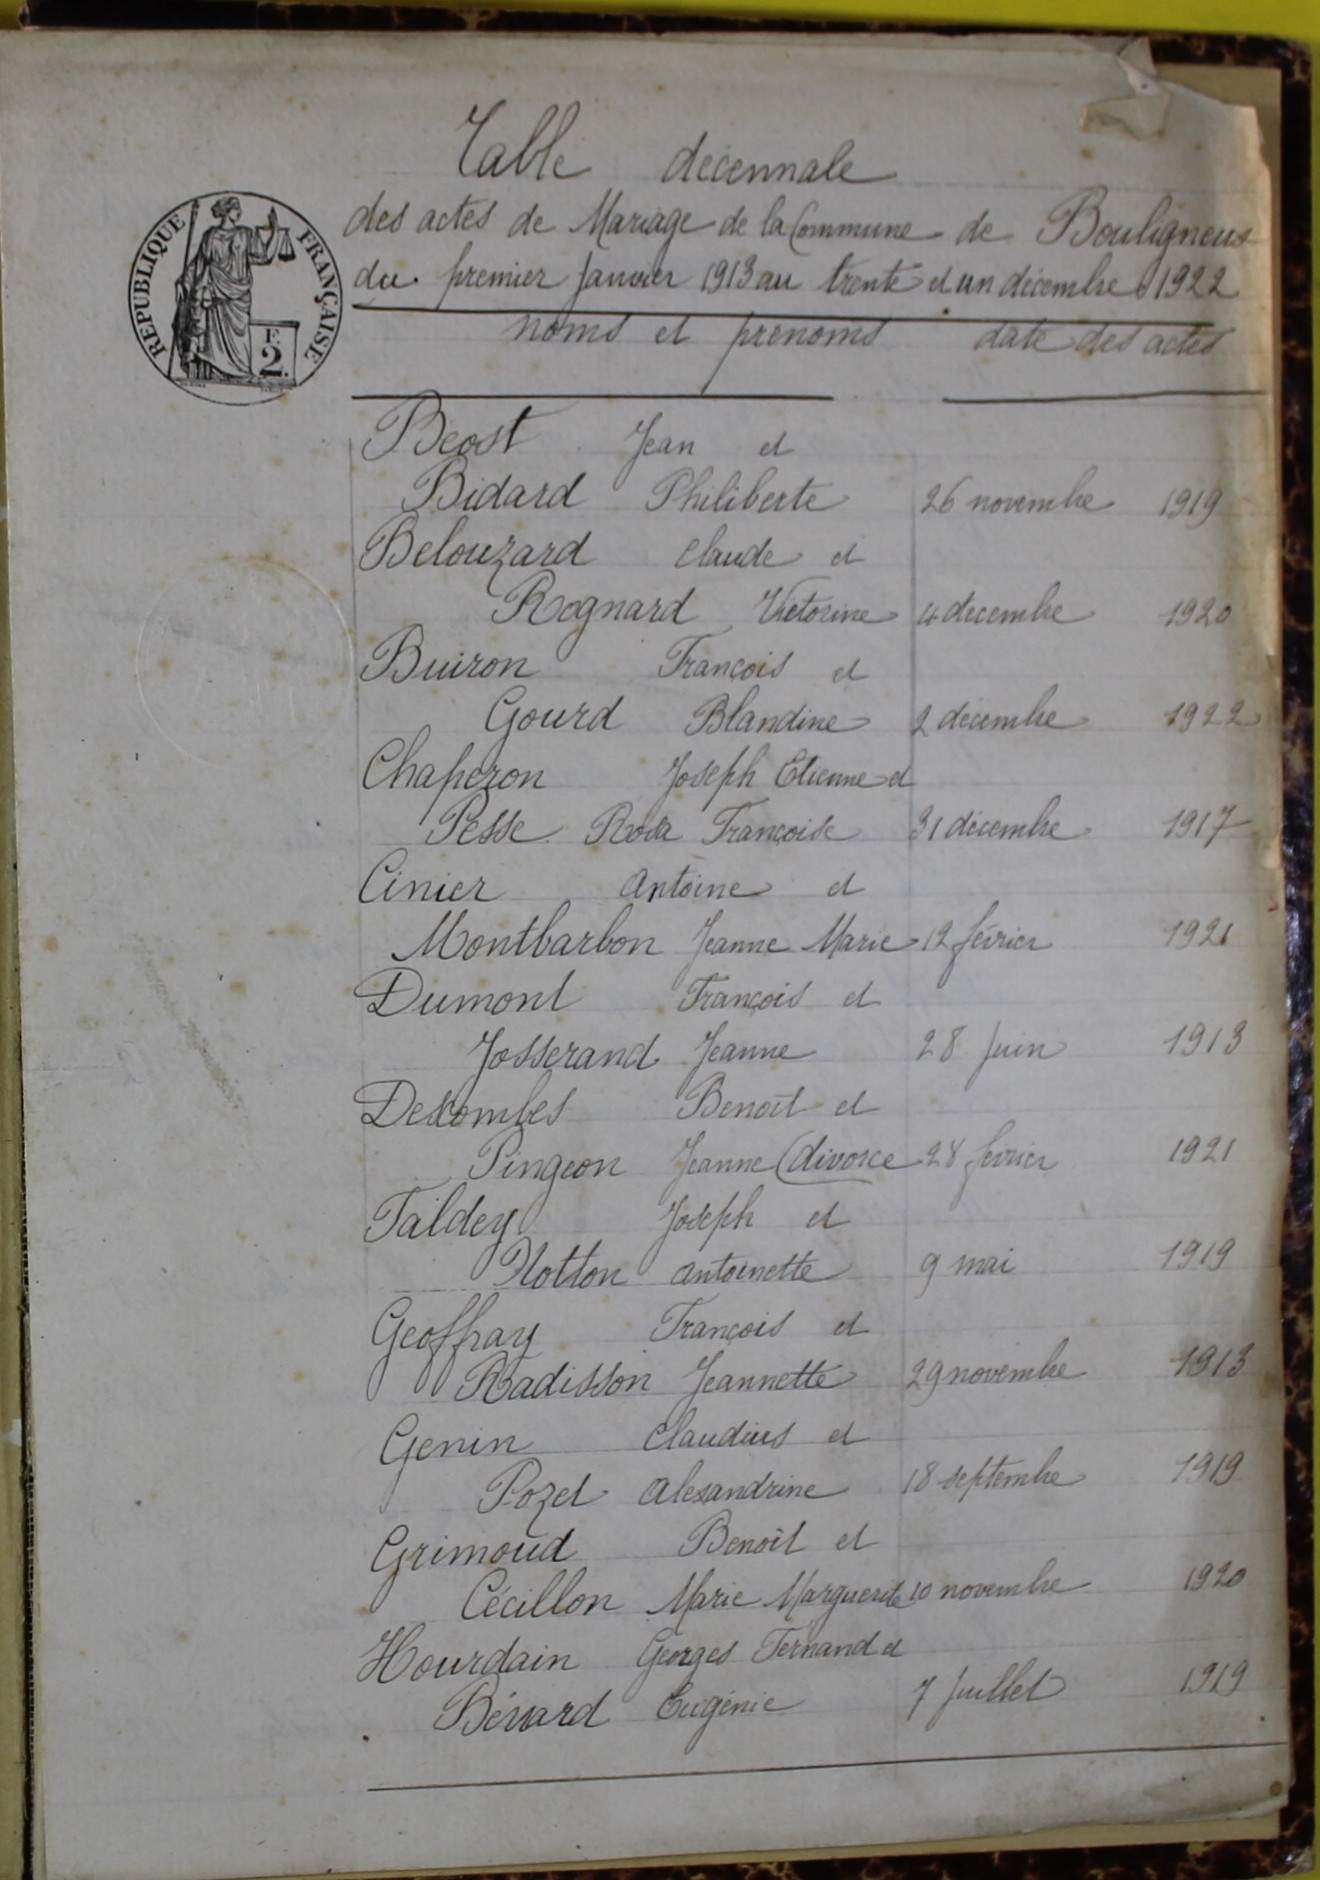 Table décennale
des actes de Mariage de la Commune de Bouligneux
du premier Janvier 1913 au trente et un décembre 1922
RÉPUBLIQUE FRANÇAISE
F.
2.
noms et prénoms date des actes
Béost Jean et
Bidard Philiberte 26 novembre 1919
Belouzard Claude et
Rognard Victorine 4 décembre 1920
Buiron François et
Gourd Blandine 2 décembre 1922
Chaperon Joseph Etienne et
Pesse Rosa Françoise 31 décembre 1917
Cinier Antoine et
Montbarbon Jeanne Marie 12 février 1921
Dumont François et
Josserand Jeanne 28 Juin 1913
Descombes Benoît et
Pingeon Jeanne (divorce 28 février 1921
Faldey Joseph et
Notton Antoinette 9 mai 1919
Geoffray François et
Radisson Jeannette 29 novembre 1913
Genin Claudius et
Pozet Alexandrine 18 septembre 1919
Grimoud Benoît et
Cécillon Marie Marguerite 10 novembre 1920
Hourdain Georges Fernand et
Bénard Eugénie 7 Juillet 1919